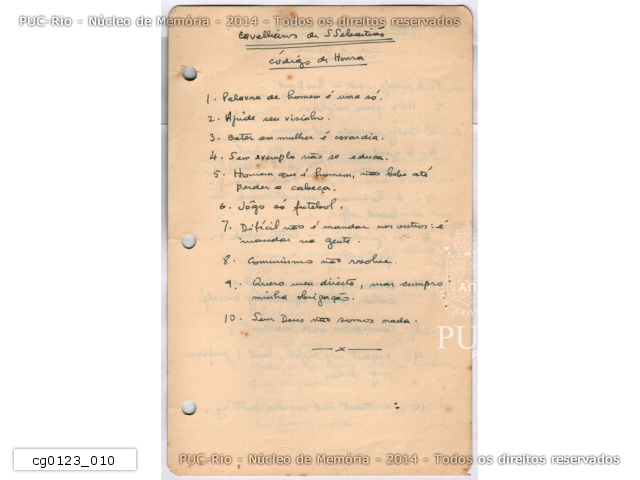 PUC-Rio - Núcleo de Memória - 2014 - Todos os direitos reservados
Cavalheiros de S Sebastião
Código de Honra
1. Palavra de homem é uma só.
2. Ajude seu visinho.
3. Bater em mulher é covardia.
4. Sem exemplo não se educa.
5. Homem que é homem, não bebe até
perder a cabeça.
6. Jôgo só futebol.
7. Difícil não é mandar nos outros: é
mandar na gente.
8. Comunismo não resolve.
9. Quero meu direito, mas cumpro
minha obrigação.
10. Sem Deus não somos nada.
x
PU
cg0123_010
PUC-Rio - Núcleo de Memória - 2014 - Todos os direitos reservados